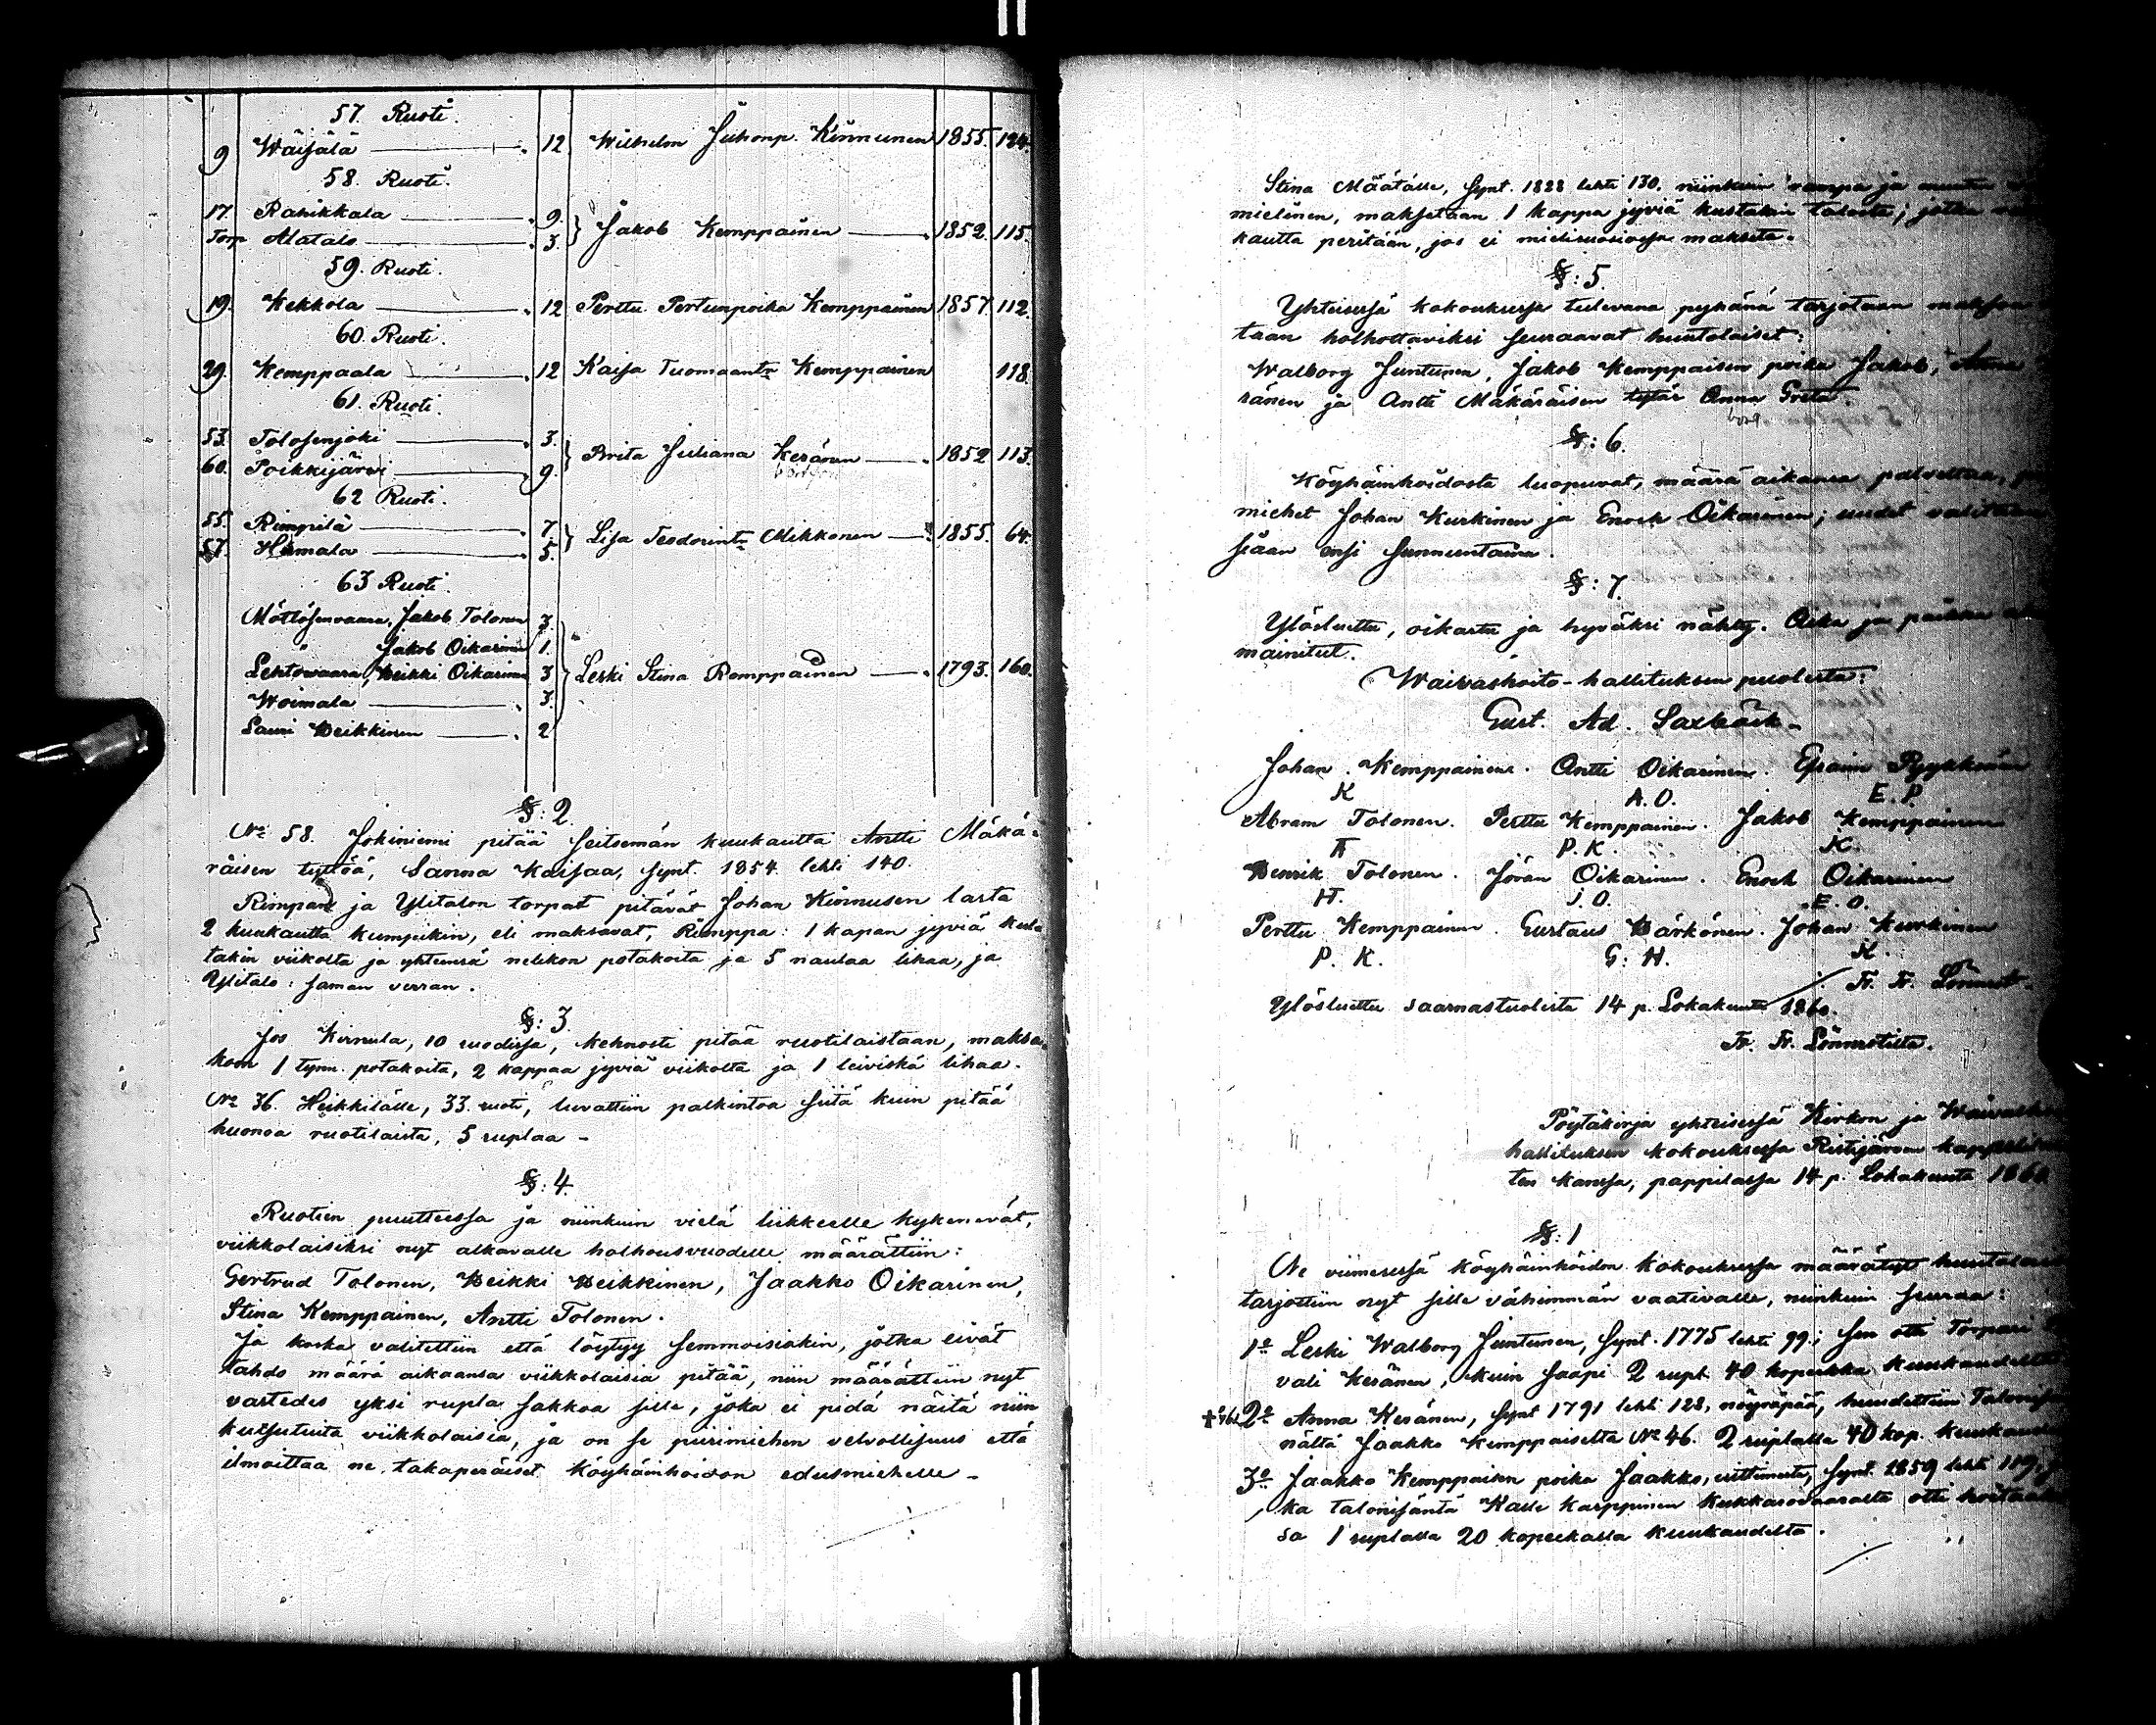 57. Ruoti.
9 Wäisälä 12 Wilhelm Juhonp. Kinnunen 1855. 124.
58. Ruoti.
17. Rahikkala 9.
Torp Alatalo 3. } Jakob Kemppainen 1852. 115.
59. Ruoti.
19. Kekkola 12 Perttu Pertunpoika Kemppainen 1857 112.
60. Ruoti.
29. Kemppaala 12 Kaisa Tuomaantr Kemppainen 118.
61. Ruoti.
53. Tolosenjoki 3.
60. Poikkijärvi 9. } Brita Juliana Keränen 1852 113.
62 Ruoti.
55. Rimpilä 7.
57. Humala 5. } Lisa Teodorintr Mikkonen 1855. 64.
63 Ruoti.
Möttösenvaara, Jakob Tolonen 3
" Jakob Oikarinen 1.
Lehtowaara, Heikki Oikarinen 3 } Leski Stina Romppainen 1793. 160.
Woimala 3.
Lauri Heikkinen 2
§: 2.
No 58. Jokiniemi pitää seitsemän kuukautta Antti Mäkä-
räisen tyttöä, Sanna Kaisaa, synt. 1854 lehti 140.
Rimpan ja Ylitalon torpat pitävät Johan Kinnusen lasta
2 kuukautta kumpikin, eli maksavat, Rimppa: 1 kapan jyviä kus-
takin viikolta ja yhteensä nelikon potakoita ja 5 naulaa lihaa, ja
Ylitalo: saman verran.
§: 3.
Jos Kirnula, 10 ruodissa, kehnosti pitää ruotilaistaan, maksa-
koon 1 tynn. potakoita, 2 kappaa jyviä viikolta ja 1 leiviskä lihaa.
No 36. Heikkilälle, 33. ruoti, luvattiin palkintoa siitä kuin pitää
huonoa ruotilaista, 5 ruplaa -
§: 4.
Ruotien puutteessa ja niinkuin vielä liikkeelle kykenevät,
viikkolaisiksi nyt alkavalle holhousvuodelle määrättiin:
Gertrud Tolonen, Heikki Heikkinen, Jaakko Oikarinen,
Stina Kemppainen, Antti Tolonen.
Ja koska valitettiin että löytyy semmoisiakin, jotka eivät
tahdo määrä aikaansa viikkolaisia pitää, niin määrättiin nyt
vastedes yksi rupla sakkoa sille, joka ei pidä näitä niin
kutsutuita viikkolaisia, ja on se piirimiehen velvollisuus että
ilmoittaa ne takaperäiset köyhäinhoidon edusmiehelle -
Stina Määtälle, synt. 1828 lehti 130. niinkuin rampa ja muuten
mielinen, maksetaan 1 kappa jyviä kustakin talosta; jotka
kautta peritään, jos ei mielisuosiossa makseta.
§: 5.
Yhteisessä kokouksessa tulevana pyhänä tarjotaan
taan holhottaviksi seuraavat huutolaiset:
Walborg Juntunen, Jakob Kemppaisen poika Jakob, Anna
ränen ja Antti Mäkäräisen tytär Anna Greta.
§: 6.
Köyhäinhoidosta luopuvat, määrä aikansa palveltua,
miehet Johan Kurkinen ja Enoch Oikarinen; uudet valitaan
siaan ensi sunnuntaina.
§: 7.
Ylösluettu, oikastu ja hyväksi nähty. Aika ja paikka
mainitut.
Waivashoito-hallituksen puolesta:
Gust. Ad. Saxbäck
Johan Kemppainen. Antti Oikarinen. Epraim Pyykkönen
K A.O. E.P.
Abram Tolonen. Perttu Kemppainen. Jakob Kemppainen
A P.K. K.
Henrik Tolonen. Jöran Oikarinen. Enoch Oikarinen
H. J.O. E.O.
Perttu Kemppainen. Gustaus Härkönen. Johan Kurkinen
P. K. G: H. K.
Fr. Fr. Lönnrot.
Ylösluettu saarnastuolista 14 p. Lokakuuta 1860.
Fr. Fr. Lönnrotilta.
Pöytäkirja yhteisessä Kirkon ja
hallituksen kokouksessa Ristijärven
ten kanssa, pappilassa 14 p. Lokakuuta 1860
§: 1
Ne viimeisessä köyhäinhoidon kokouksessa määrätyt
tarjottiin nyt sille vähimmän vaativalle, niinkuin seuraa:
1o Leski Walborg Juntunen, synt. 1775 lehti 99.; sen otti Torpari
vali Keränen, kuin saapi 2 rupl. 40 kopeekka kuukaudelta
2o Anna Keränen, synt 1791 lehti 128, nöyräpää, huudettiin
nältä Jaakko Kemppaiselta No 46. 2 ruplalla 40 kop.
3o Jaakko Kemppaisen poika Jaakko, synt. 1859 lehti 119,
ka talonisäntä Kalle Karppinen Kukkarovaaralta otti
sa 1 ruplalla 20 kopeekalla kuukaudelta.